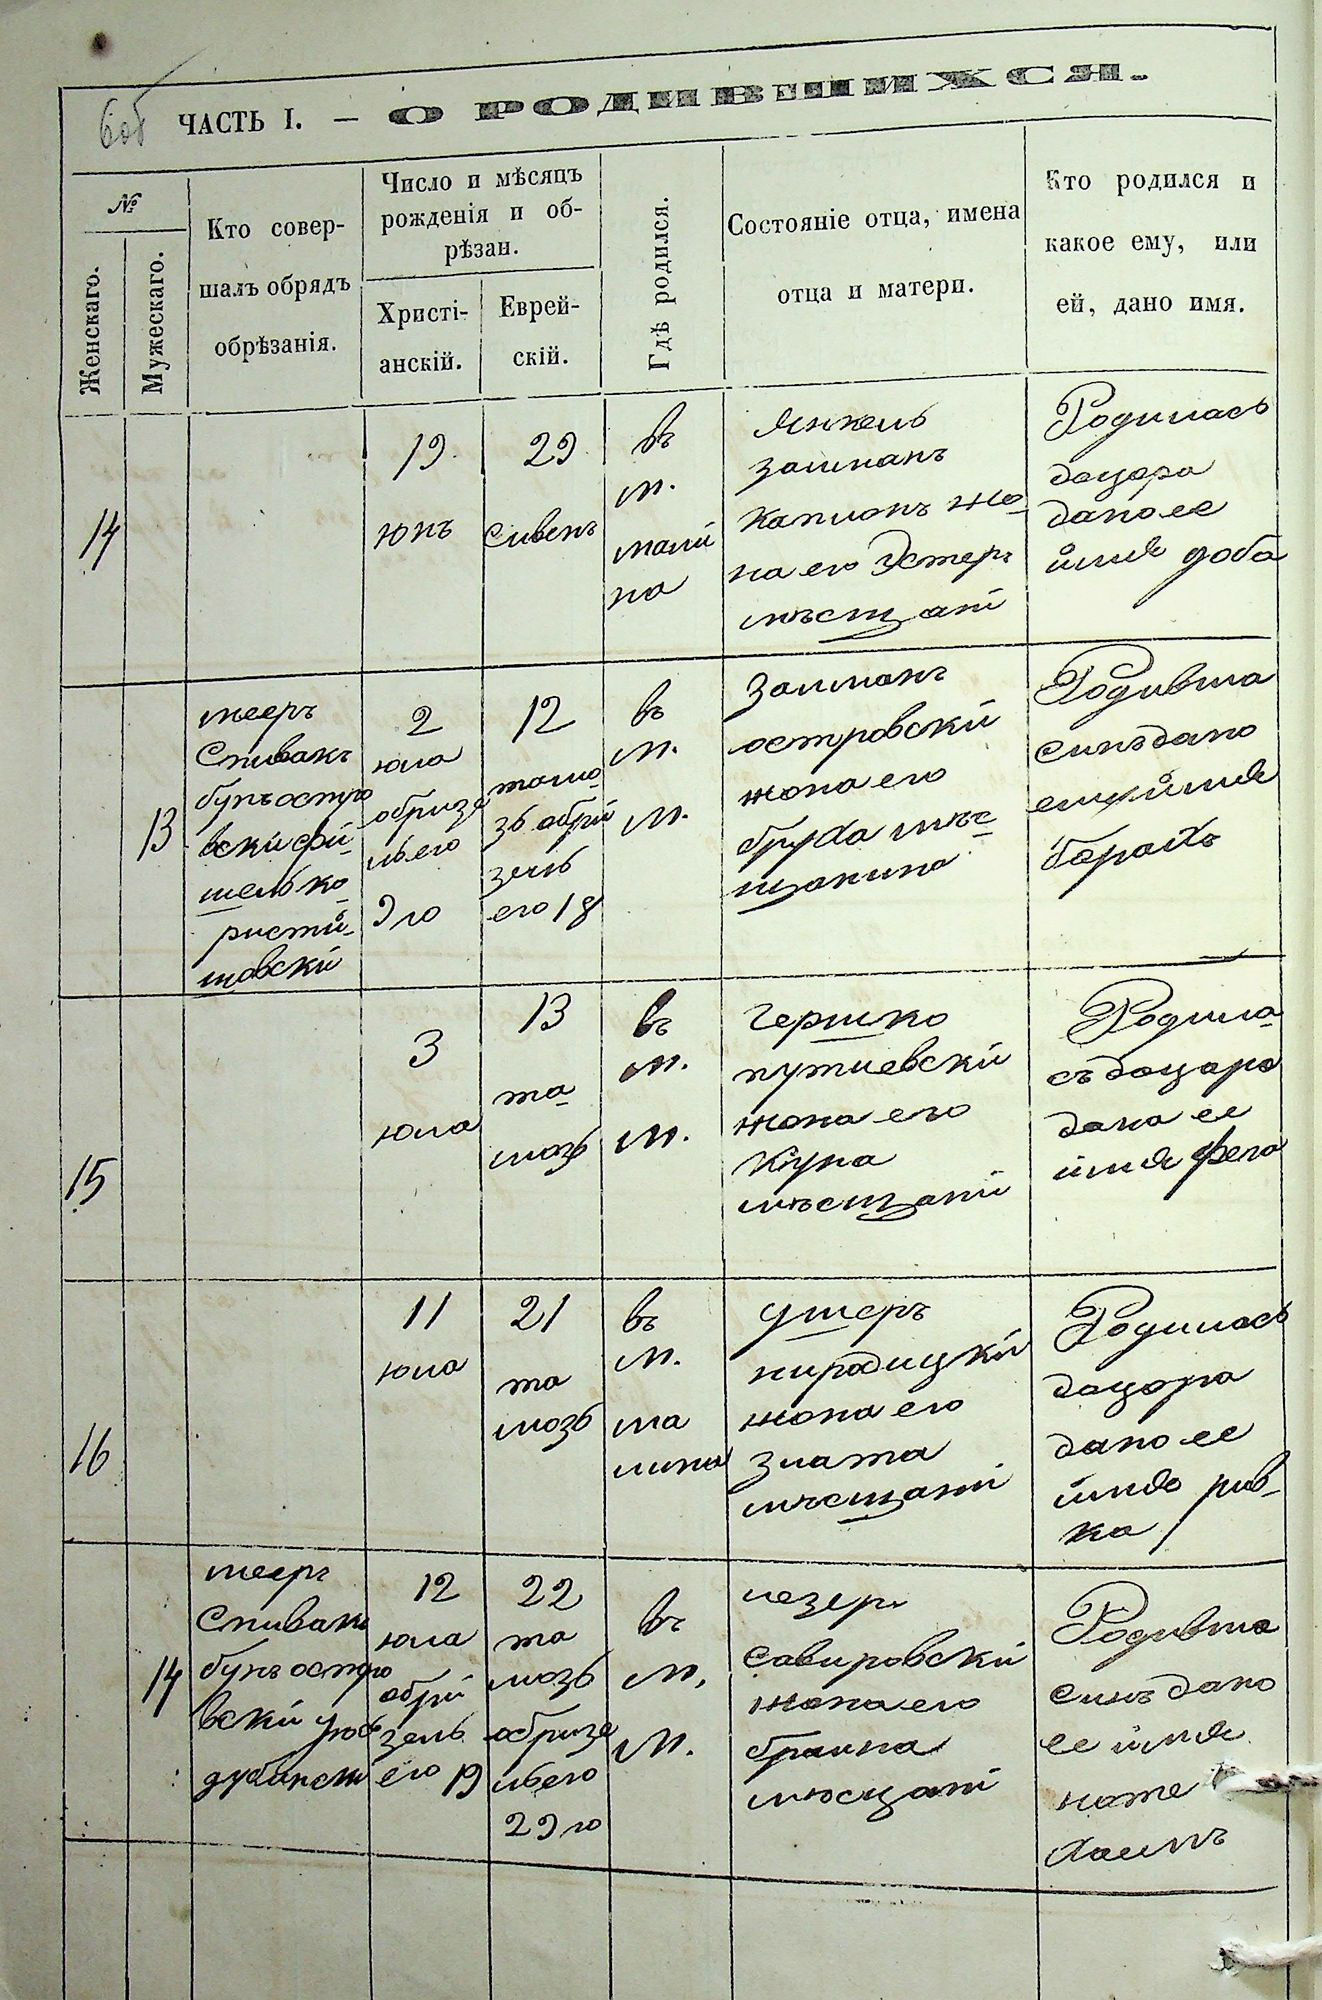 6 об
ЧАСТЬ I. — О РОДИВШИХСЯ.
№
Женскаго.
Мужескаго.
Кто совер-
шалъ обрядъ
обрѣзанія.
Число и мѣсяцъ
рожденія и об-
рѣзан.
Христі-
анскій.
Еврей-
скій.
Гдѣ родился.
Состояніе отца, имена
отца и матери.
Кто родился и
какое ему, или
ей, дано имя.
14
19
юнъ
29
Сивенъ
въ
м.
мали
на
Янкель
залманъ
Каплонъ жо-
на его Эстеръ
мѣсщані
Родилась
доцера
дано ее
имя доба
13
мееръ
Спивакъ
бунъ остро
вски фи-
шель ко-
ристи-
шовски
2
юла
обризе
ль его
9 го
12
тамо
зь обри
зель
его 19
въ
м.
м.
Залманъ
островски
жона его
бруха мѣс-
щанина
Родивша
синъ дано
ему имя
борахъ
15
3
юла
13
та-
мозь
въ
м.
м.
Гершко
путиевски
жона его
Куна
мѣсщани
Родила-
съ доцера
дана ее
имя фега
16
11
юла
21
та
мозь
въ
м.
ма
лина
ушеръ
нирадицки
жона его
Злата
мѣсщани
Родилась
доцора
дано ее
имя рив-
ка
14
меер
Спивакъ
бунъ остро
вски
12
юла
обри
зель
его 19
22
та
мозь
обризе
ль его
29 го
въ
м.
м.
лезеръ
Савировски
жона его
браина
мѣсщані
Родивша
синъ дано
ее имя
ноте
Хаимъ